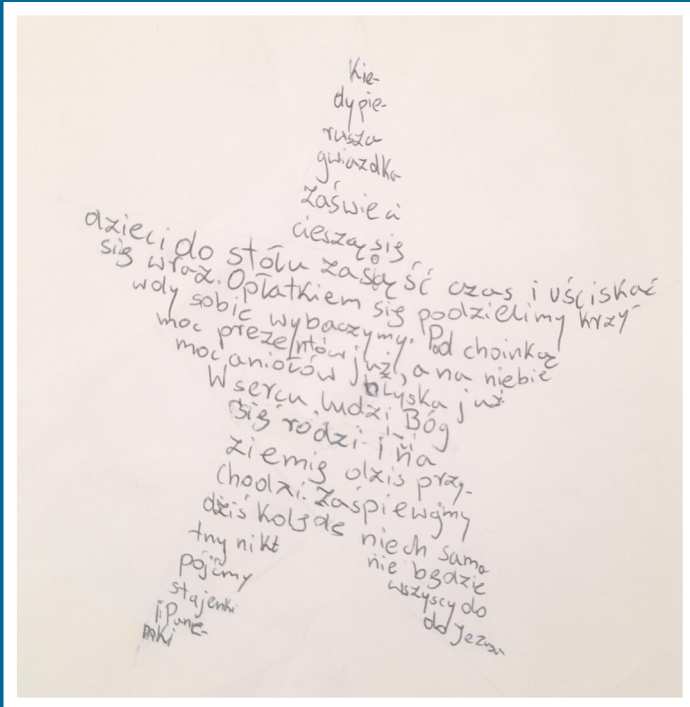 Kie-
dy pie-
rwsza
gwiazdka
zaświeci
cieszą się
dzieci do stołu zasiąść czas i uściskać
się wraz. Opłatkiem się podzielimy krzy-
wdy sobie wybaczymy. Pod choinką
moc prezentów już, a na niebie
moc aniołów błyska już
W sercu ludzi Bóg
się rodzi i na
ziemię dziś przy-
chodzi. Zaśpiewajmy
dziś kolędę niech samo
tny nikt nie będzie
pójdźmy wszyscy do
stajenki do Jezusa
i Pane-
nki